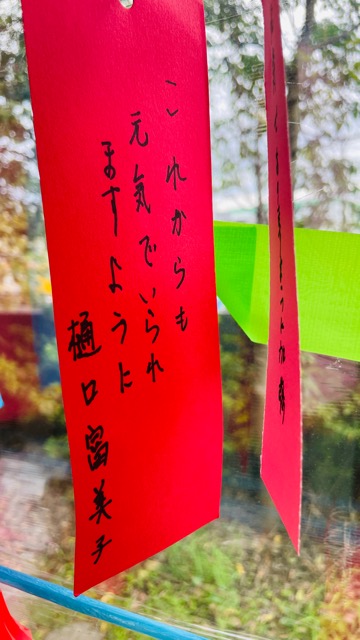 これからも
元気でいられ
ますように
樋口富美子